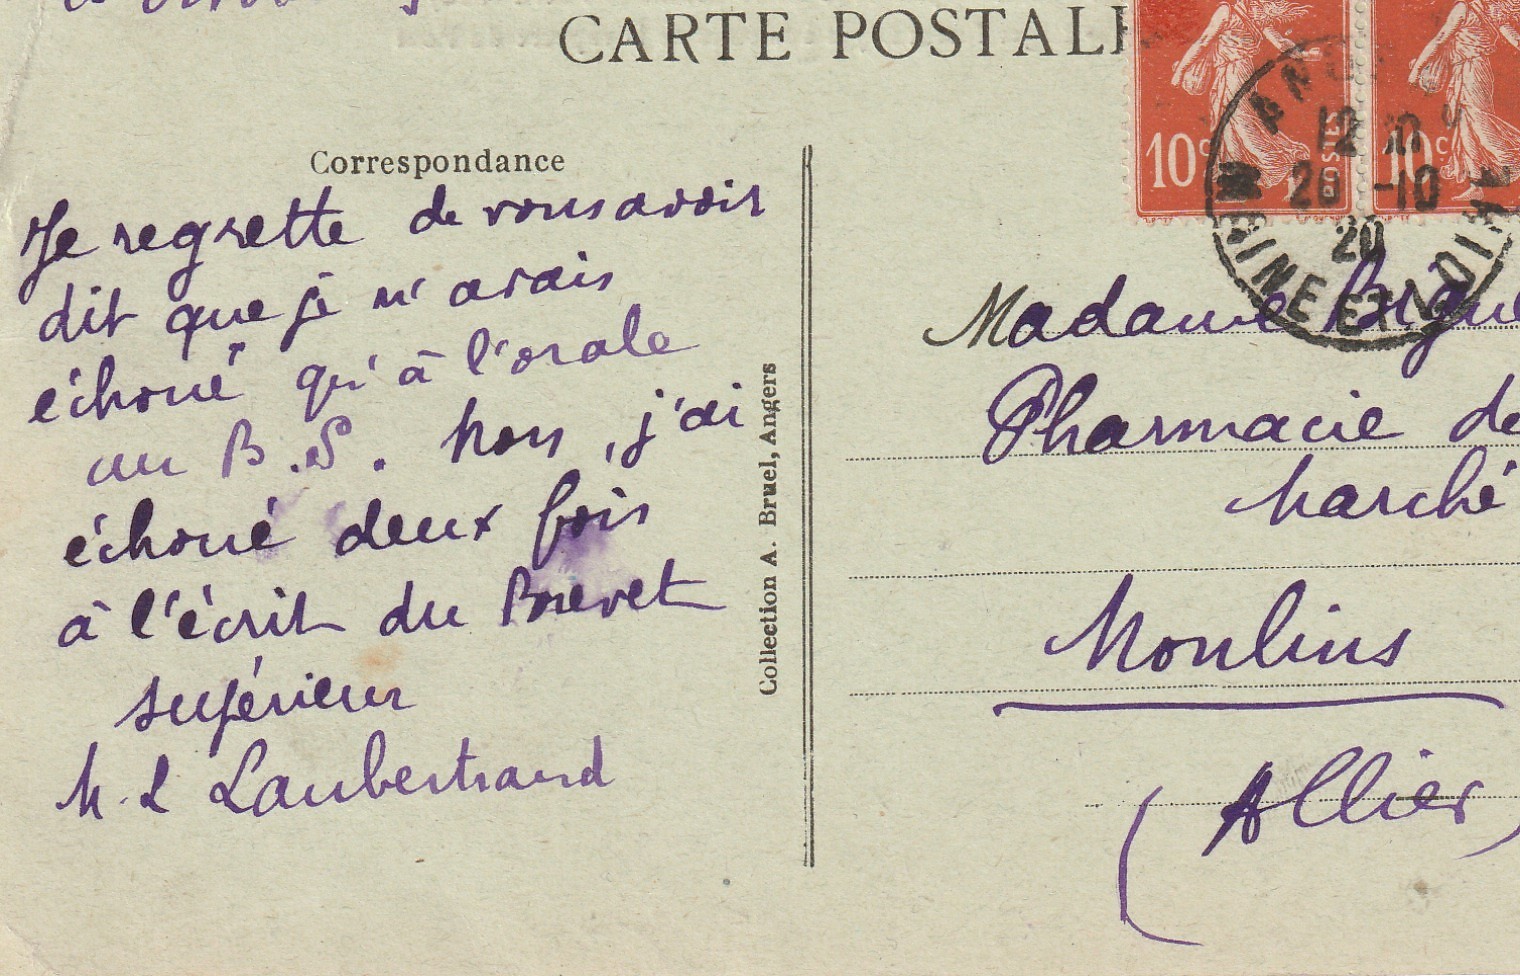 CARTE POSTALE
Correspondance
Je regrette de vous avoir
dit que je n'avais
échoué qu'à l'orale
au B.S. Non, j'ai
échoué deux fois
à l'écrit du Brevet
supérieur
M. L Laubertrand
Collection A. Bruel, Angers
10c POSTES
10c
ANGERS
12
-10
20
MAINE ET LOIRE
Madame
Pharmacie de
Marché
Moulins
(Allier)